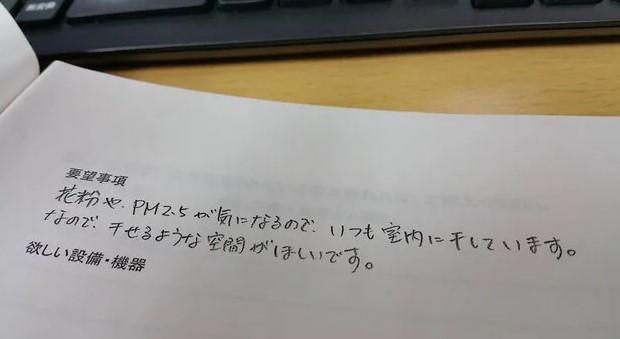 要望事項
花粉や、PM2.5が気になるので、いつも室内に干しています。
なので、干せるような空間がほしいです。
欲しい設備・機器